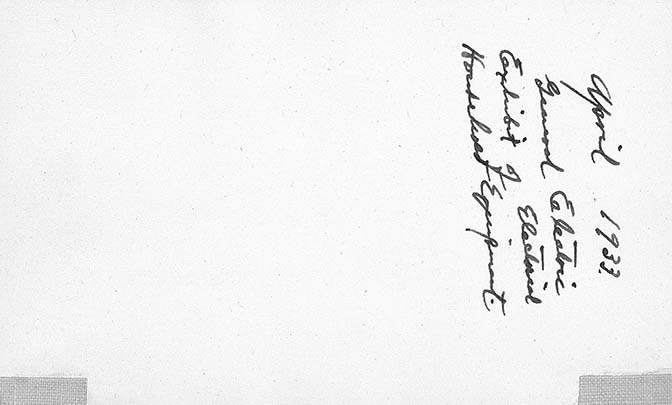 April 1933.
General Electric
Exhibit of Electrical
Household Equipment.